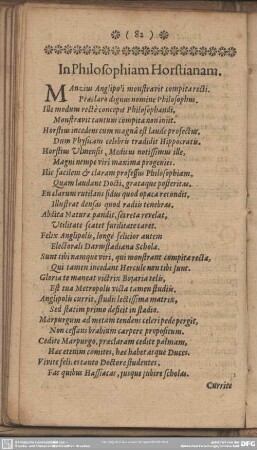 ( 82 )
In Philosophiam Horstianam.
MAnzius Anglipoli monstravit compita recti.
Præclaro dignus nomine Philosophus.
Ille modum rectè concepit Philosophandi,
Monstravit tantum compita non iniit.
Horstius incedens cum magnâ est laude profectus,
Dum Physicam celebris tradidit Hippocratis.
Horstius Ulmensis, Medicus notissimus ille,
Magni nempe viri maxima progenies.
Hic facilem & claram professus Philosophiam,
Quam laudant Docti, grataque posteritas.
En clarum rutilans sidus quod opaca recondit,
Illustrat densas quod radiis tenebras.
Abdita Naturæ pandit, secreta revelat,
Utilitate scatet futilitate caret.
Felix Anglipolis, longè felicior autem
Electoralis Darmstadiana Schola.
Sunt tibi namque viri, qui monstrant compita recta,
Qui tamen incedant Hercule more sunt.
Gloria te maneat victrix Bojaria telis,
Est tua Metropolis victa tamen studiis.
Anglipolis currit, studii lectissima matrix,
Sed statim primo deficit in stadio.
Marpurgum ad metam tendens celeri pede pergit,
Non cessans brabium carpere propositum.
Cedite Marpurgo, præclaram cedite palmam,
Hac etenim comites, hac habet atque Duces.
Vivite feli. estanto Doctore studentes,
Fas quibus Hassiacas, jusque subire scholas.
Currite